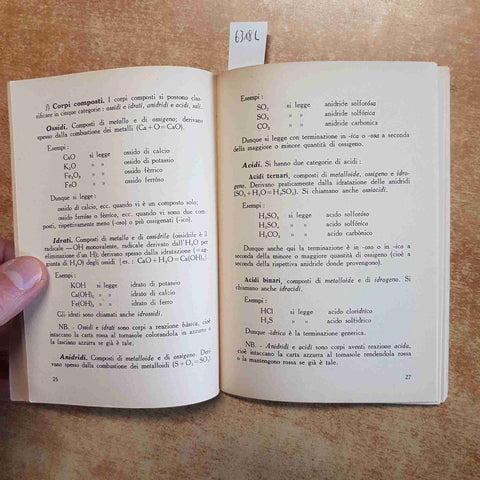 6318 L
f) Corpi composti. I corpi composti si possono clas-
sificare in cinque categorie: ossidi e idrati, anidridi e acidi, sali.
Ossidi. Composti di metallo e di ossigeno; derivano
spesso dalla combustione dei metalli (Ca+O=CaO).
Esempi:
CaO si legge ossido di calcio
K₂O » » ossido di potassio
Fe₂O₃ » » ossido fèrrico
FeO » » ossido ferróso
Dunque si legge:
ossido di calcio, ecc. quando vi è un composto solo;
ossido ferróso o fèrrico, ecc. quando vi sono due com-
posti, rispettivamente meno (-oso) o più ossigenati (-ico).
Idrati. Composti di metallo e di ossidrile (ossidrile è il
radicale —OH monovalente, radicale derivato dall'H₂O per
eliminazione d'un H); derivano spesso dalla idratazione (=ag-
giunta di H₂O) degli ossidi [es.: CaO+H₂O=Ca(OH)₂]
Esempi:
KOH si legge idrato di potassio
Ca(OH)₂ » » idrato di calcio
Fe(OH)₃ » » idrato di ferro
Gli idrati sono chiamati anche idrossidi.
NB. - Ossidi e idrati sono corpi a reazione bàsica, cioè
intaccano la carta rossa al tornasole colorandola in azzurro o
la lasciano azzurra se già è tale.
Anidridi. Composti di metalloide e di ossigeno. Deri-
vano spesso dalla combustione dei metalloidi (S+O₂=SO₂)
26
Esempi:
SO₂ si legge anidride solforósa
SO₃ » » anidride solfòrica
CO₂ » » anidride carbonica
Dunque si legge con terminazione in -ica o -osa a seconda
della maggiore o minore quantità di ossigeno.
Acidi. Si hanno due categorie di acidi:
Acidi ternari, composti di metalloide, ossigeno e idro-
geno. Derivano praticamente dalla idratazione delle anidridi
(SO₃+H₂O=H₂SO₄). Si chiamano anche ossiacidi.
Esempi:
H₂SO₃ si legge acido solforóso
H₂SO₄ » » acido solfòrico
H₂CO₃ » » acido carbònico
Dunque anche qui la terminazione è in -oso o in -ico a
seconda della minore o maggiore quantità di ossigeno (cioè a
seconda della rispettiva anidride donde provengono).
Acidi binari, composti di metalloide e di idrogeno. Si
chiamano anche idracidi.
Esempi:
HCl si legge acido cloridrico
H₂S » » acido solfidrico
Dunque -idrico è la terminazione generica.
NB. - Anidridi e acidi sono corpi aventi reazione acida,
cioè intaccano la carta azzurra al tornasole rendendola rossa
o la mantengono rossa se già è tale.
27